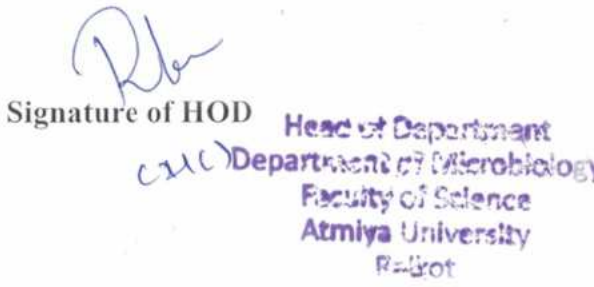 Signature of HOD
Head of Department
Department of Microbiology
Faculty of Science
Atmiya University
Rajkot